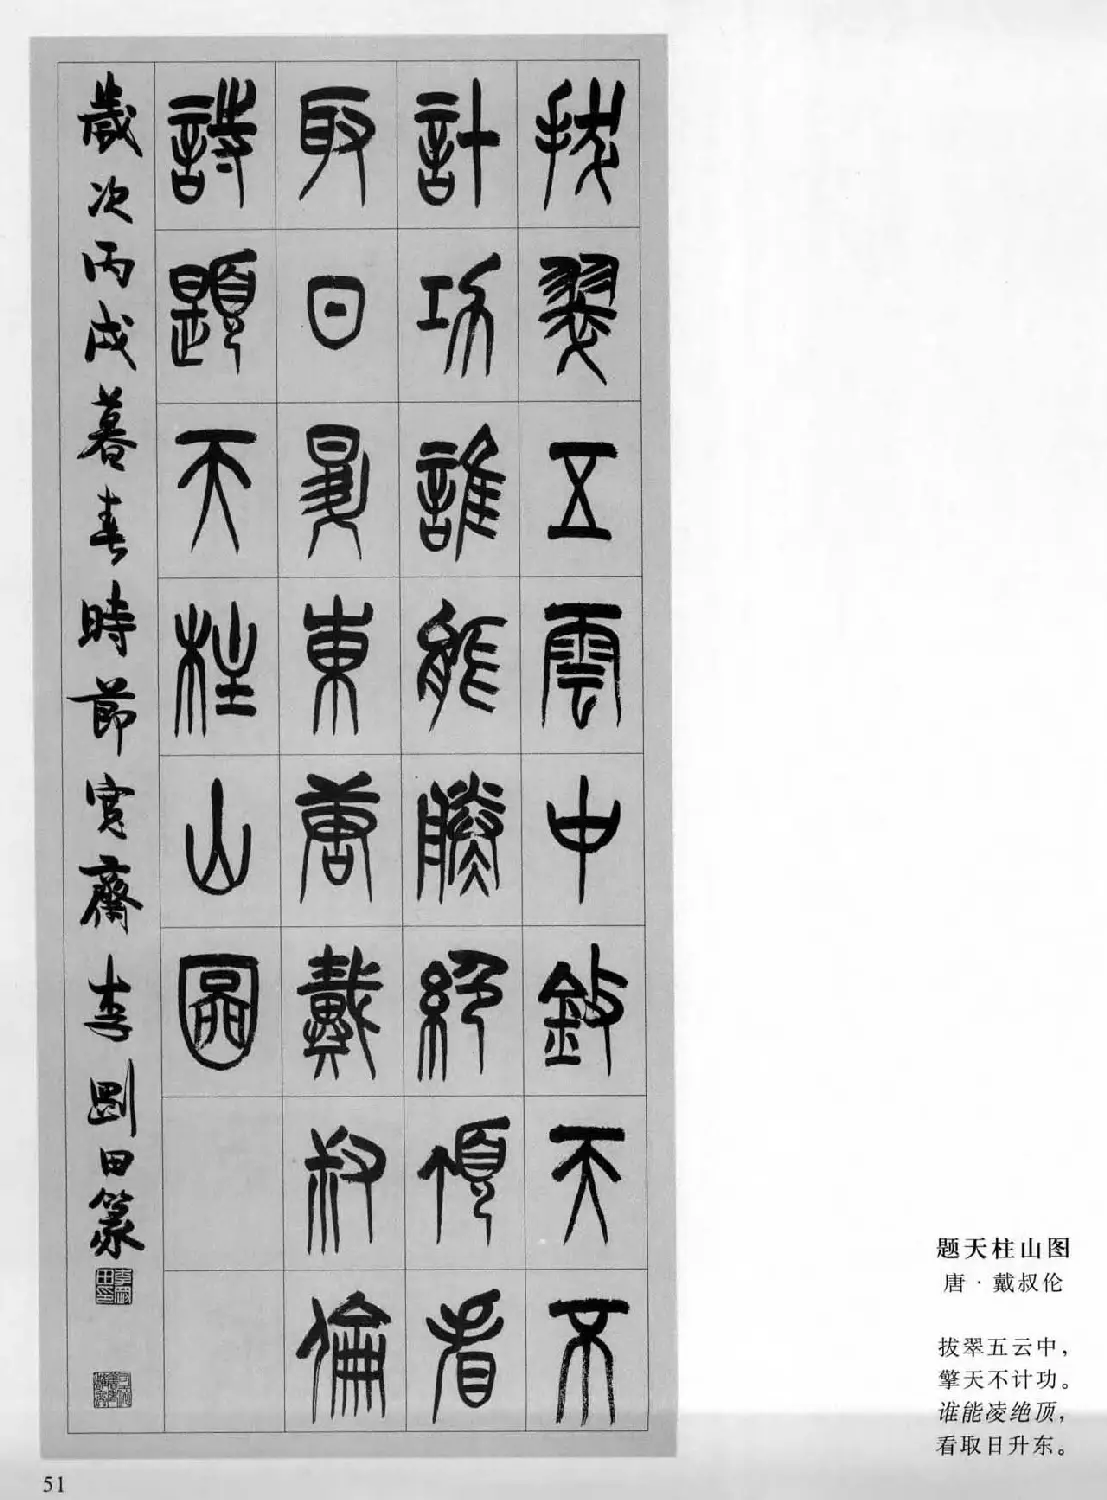 拔翠五雲中擎天不
計功誰能凌絕頂看
取日昇東唐戴叔倫
詩題天柱山圖
歲次丙戌暮春時節寬齋李剛田篆
题天柱山图
唐·戴叔伦
拔翠五云中，
擎天不计功。
谁能凌绝顶，
看取日升东。
51